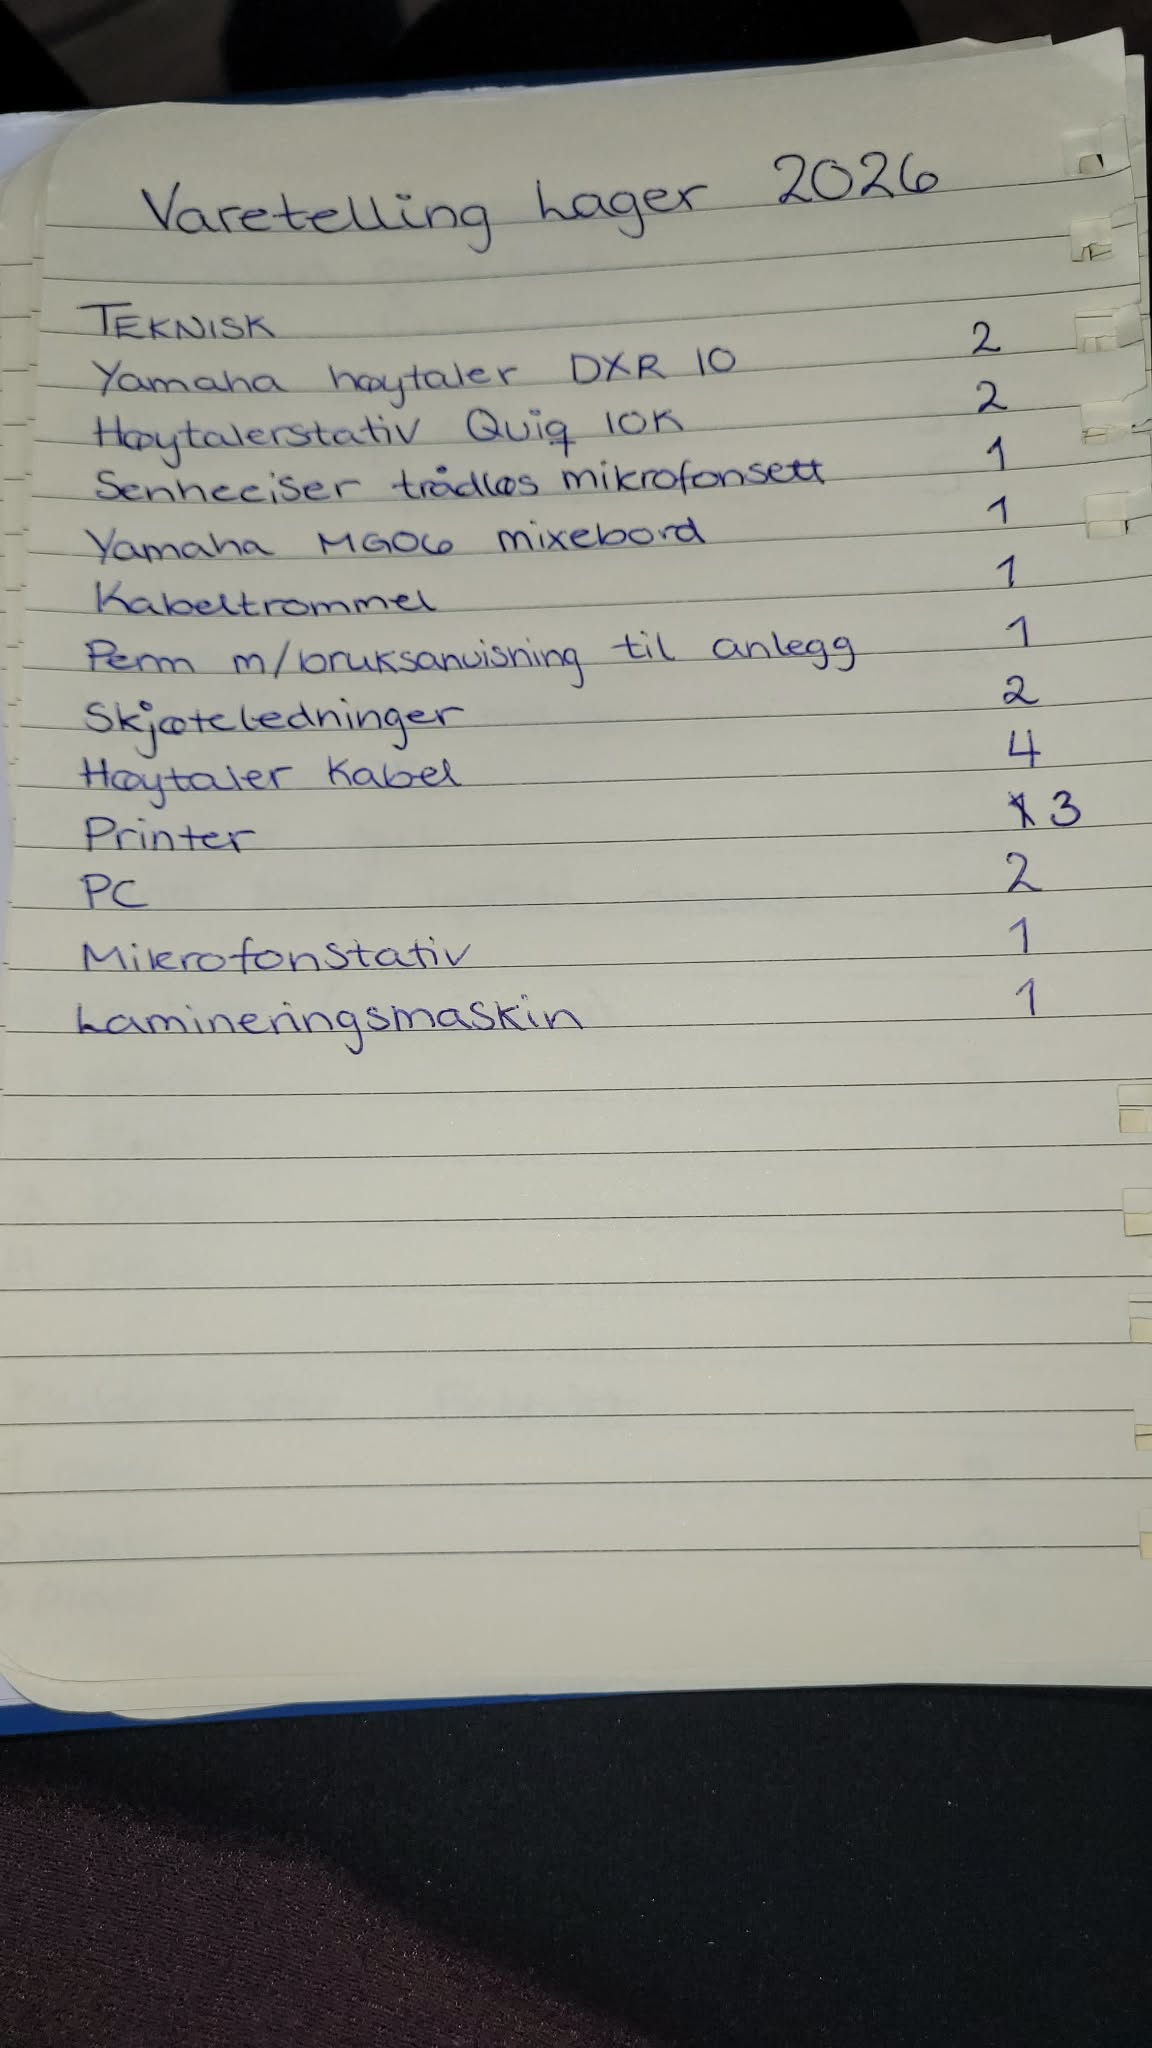 Varetelling Lager 2026
TEKNISK
Yamaha høytaler DXR 10 2
Høytalerstativ Quiq 10K 2
Senheeiser trådløs mikrofonsett 1
Yamaha MG06 mixebord 1
Kabeltrommel 1
Perm m/bruksanvisning til anlegg 1
Skjøteledninger 2
Høytaler Kabel 4
Printer 3
PC 2
Mikrofonstativ 1
Lamineringsmaskin 1